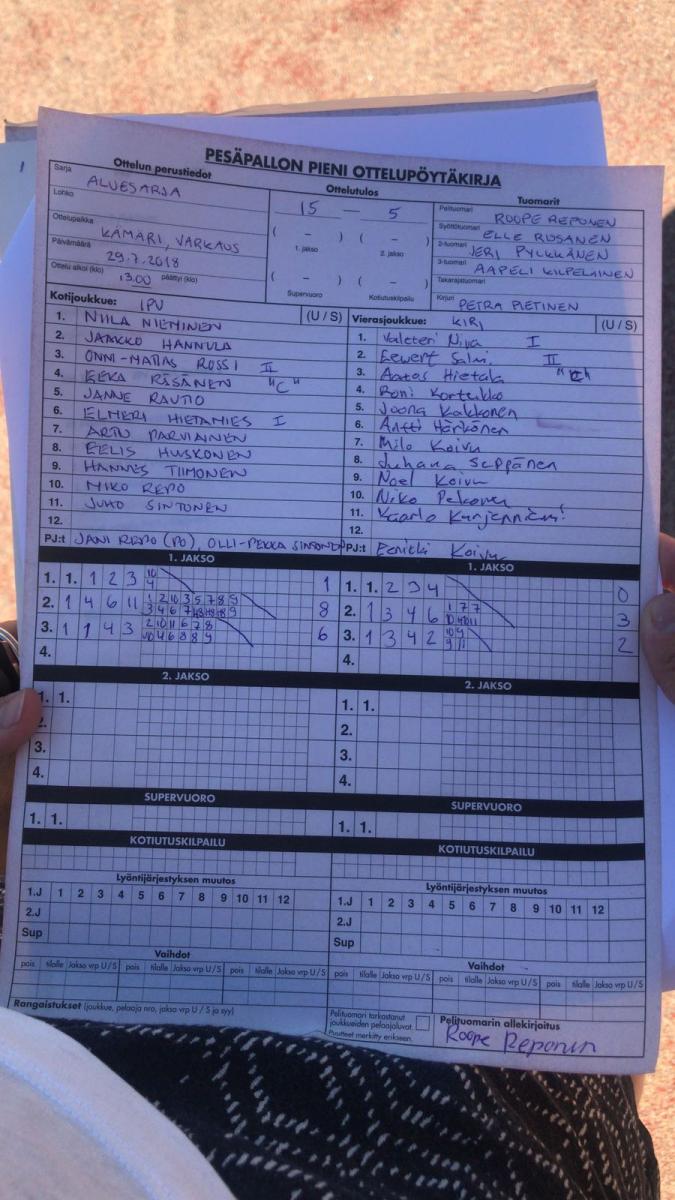 PESÄPALLON PIENI OTTELUPÖYTÄKIRJA
Ottelun perustiedot
Sarja ALUESARJA
Lohko
Ottelupaikka KÄMÄRI, VARKAUS
Päivämäärä 29.7.2018
Ottelu alkoi (klo) 13.00 päättyi (klo)
Ottelutulos
15 — 5
( – ) ( – )
1. jakso 2. jakso
( – ) ( – )
Supervuoro Kotiutuskilpailu
Tuomarit
Pelituomari ROOPE REPONEN
Syöttötuomari ELLE RUSANEN
2-tuomari JERI PYLKKÄNEN
3-tuomari AAPELI KILPELÄINEN
Takarajatuomari
Kirjuri PETRA PIETINEN
Kotijoukkue: IPV (U / S)
1. NIILA NIEMINEN
2. JAAKKO HANNULA
3. ONNI-MATIAS ROSSI II
4. EEKA RÄSÄNEN "C"
5. JANNE RAUTIO
6. ELMERI HIETAMIES I
7. ARTU PARVIAINEN
8. EELIS HUSKONEN
9. HANNES TIIMONEN
10. NIKO REPO
11. JUHO SINTONEN
12.
PJ:t JANI REPO (PO), OLLI-PEKKA SINTONEN
Vierasjoukkue: KIRI (U / S)
1. Valtteri Niva I
2. Eewert Salmi II
3. Aatos Hietala "C"
4. Roni Korteikko
5. Joona Kakkonen
6. Antti Härkönen
7. Milo Koivu
8. Juhana Seppänen
9. Noel Koivu
10. Niko Pekonen
11. Kaarlo Kurjenniemi
12.
PJ:t Koivu
1. JAKSO
1. 1. 1 2 3 10 4 1
2. 1 4 6 11 8
3. 1 1 4 3 6
4.
1. JAKSO
1. 1. 2 3 4 0
2. 1 3 4 6 3
3. 1 3 4 2 2
4.
2. JAKSO
1. 1.
2.
3.
4.
2. JAKSO
1. 1.
2.
3.
4.
SUPERVUORO
1. 1.
SUPERVUORO
1. 1.
KOTIUTUSKILPAILU
KOTIUTUSKILPAILU
Lyöntijärjestyksen muutos
1.J 1 2 3 4 5 6 7 8 9 10 11 12
2.J
Sup
Lyöntijärjestyksen muutos
1.J 1 2 3 4 5 6 7 8 9 10 11 12
2.J
Sup
Vaihdot
pois tilalle Jakso vrp U / S pois tilalle Jakso vrp U / S pois tilalle Jakso vrp U / S
Vaihdot
pois tilalle Jakso vrp U / S pois tilalle Jakso vrp U / S pois tilalle Jakso vrp U / S
Rangaistukset (joukkue, pelaaja nro, jakso vrp U / S ja syy)
Pelituomari tarkastanut
joukkueiden pelaajaluvat.
Puutteet merkitty erikseen.
Pelituomarin allekirjoitus
Roope Reponen